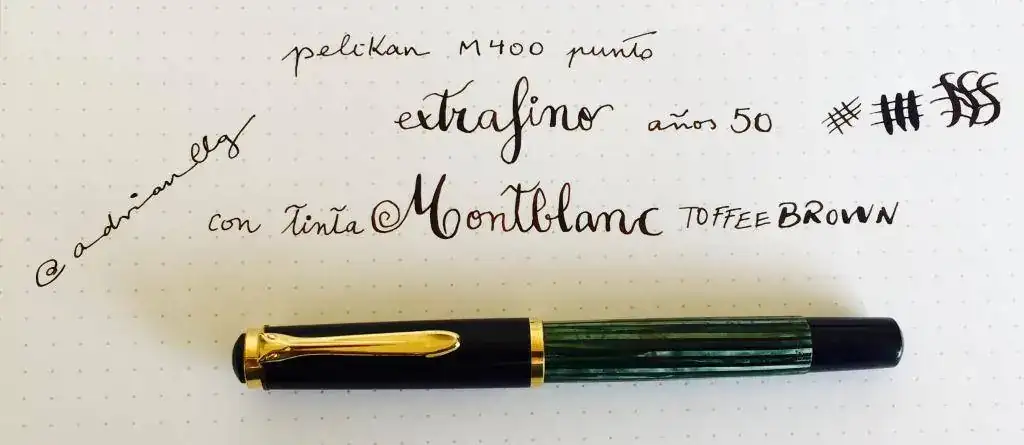 pelikan M400 punto
extrafino años 50
con tinta @Montblanc TOFFEE BROWN
@adrianeég